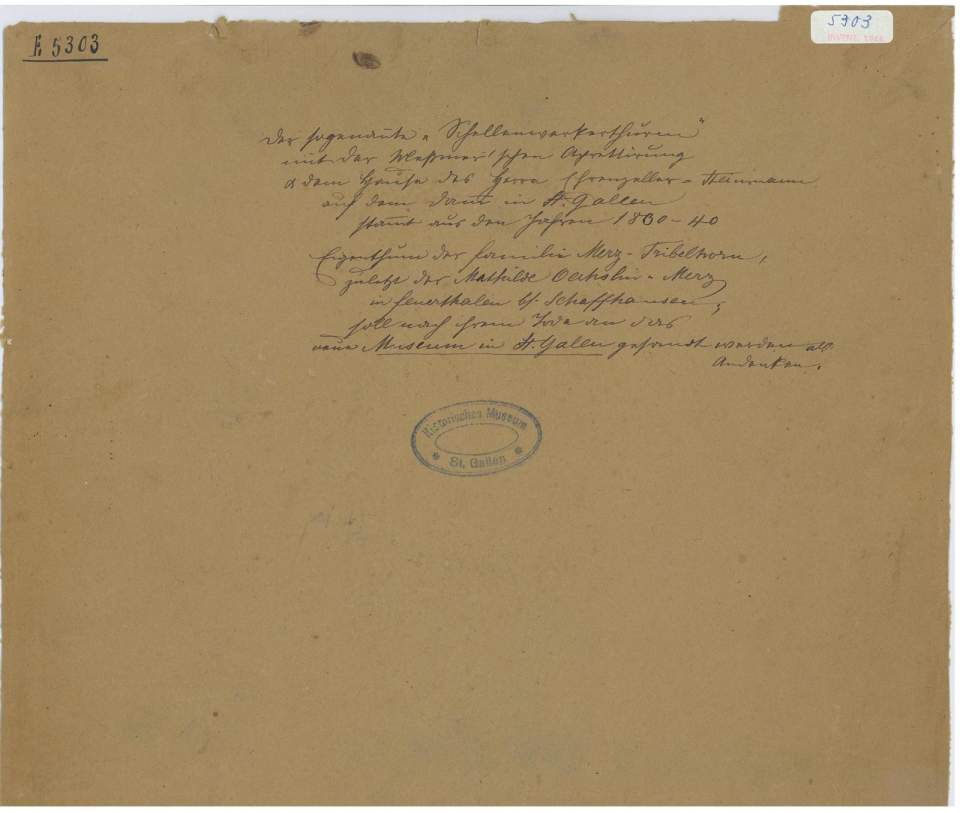 E 5303
5303
INVENT. 1948
Der sogenannte „Schellenwerkerthurm"
mit der Messmer'schen Apretirung
& dem Hause des Herrn Ehrenzeller-
auf dem Damm in St. Gallen
stammt aus den Jahren 1830-40
Eigenthum der Familie Merz-Tribelhorn,
zuletzt der Mathilde Oechslin-Merz
in Feuerthalen b/. Schaffhausen;
soll nach ihrem Tode an das
neue Museum in St. Gallen gesandt werden als
Andenken.
Historisches Museum
St. Gallen